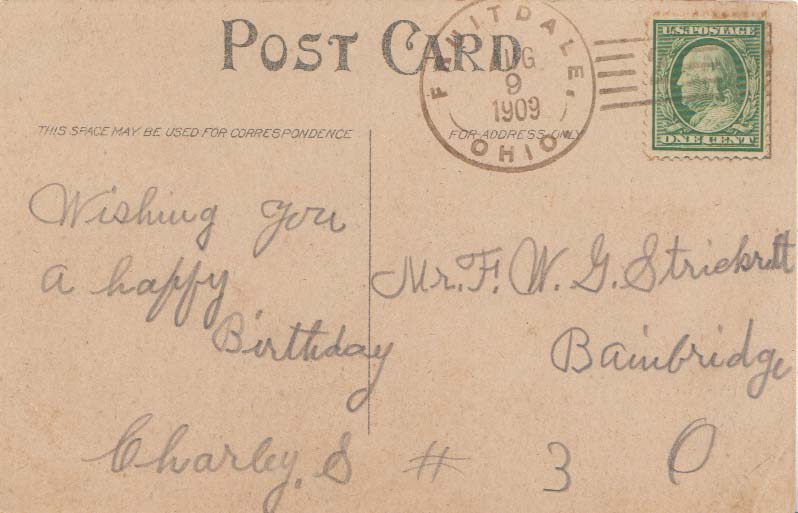 POST CARD
FRUITDALE,
AUG
9
1909
OHIO
U.S. POSTAGE
ONE CENT
THIS SPACE MAY BE USED FOR CORRESPONDENCE
FOR ADDRESS ONLY
Wishing you
a happy
Birthday
Charley. S
Mr. F. W. G.
Bainbridge
# 3 O